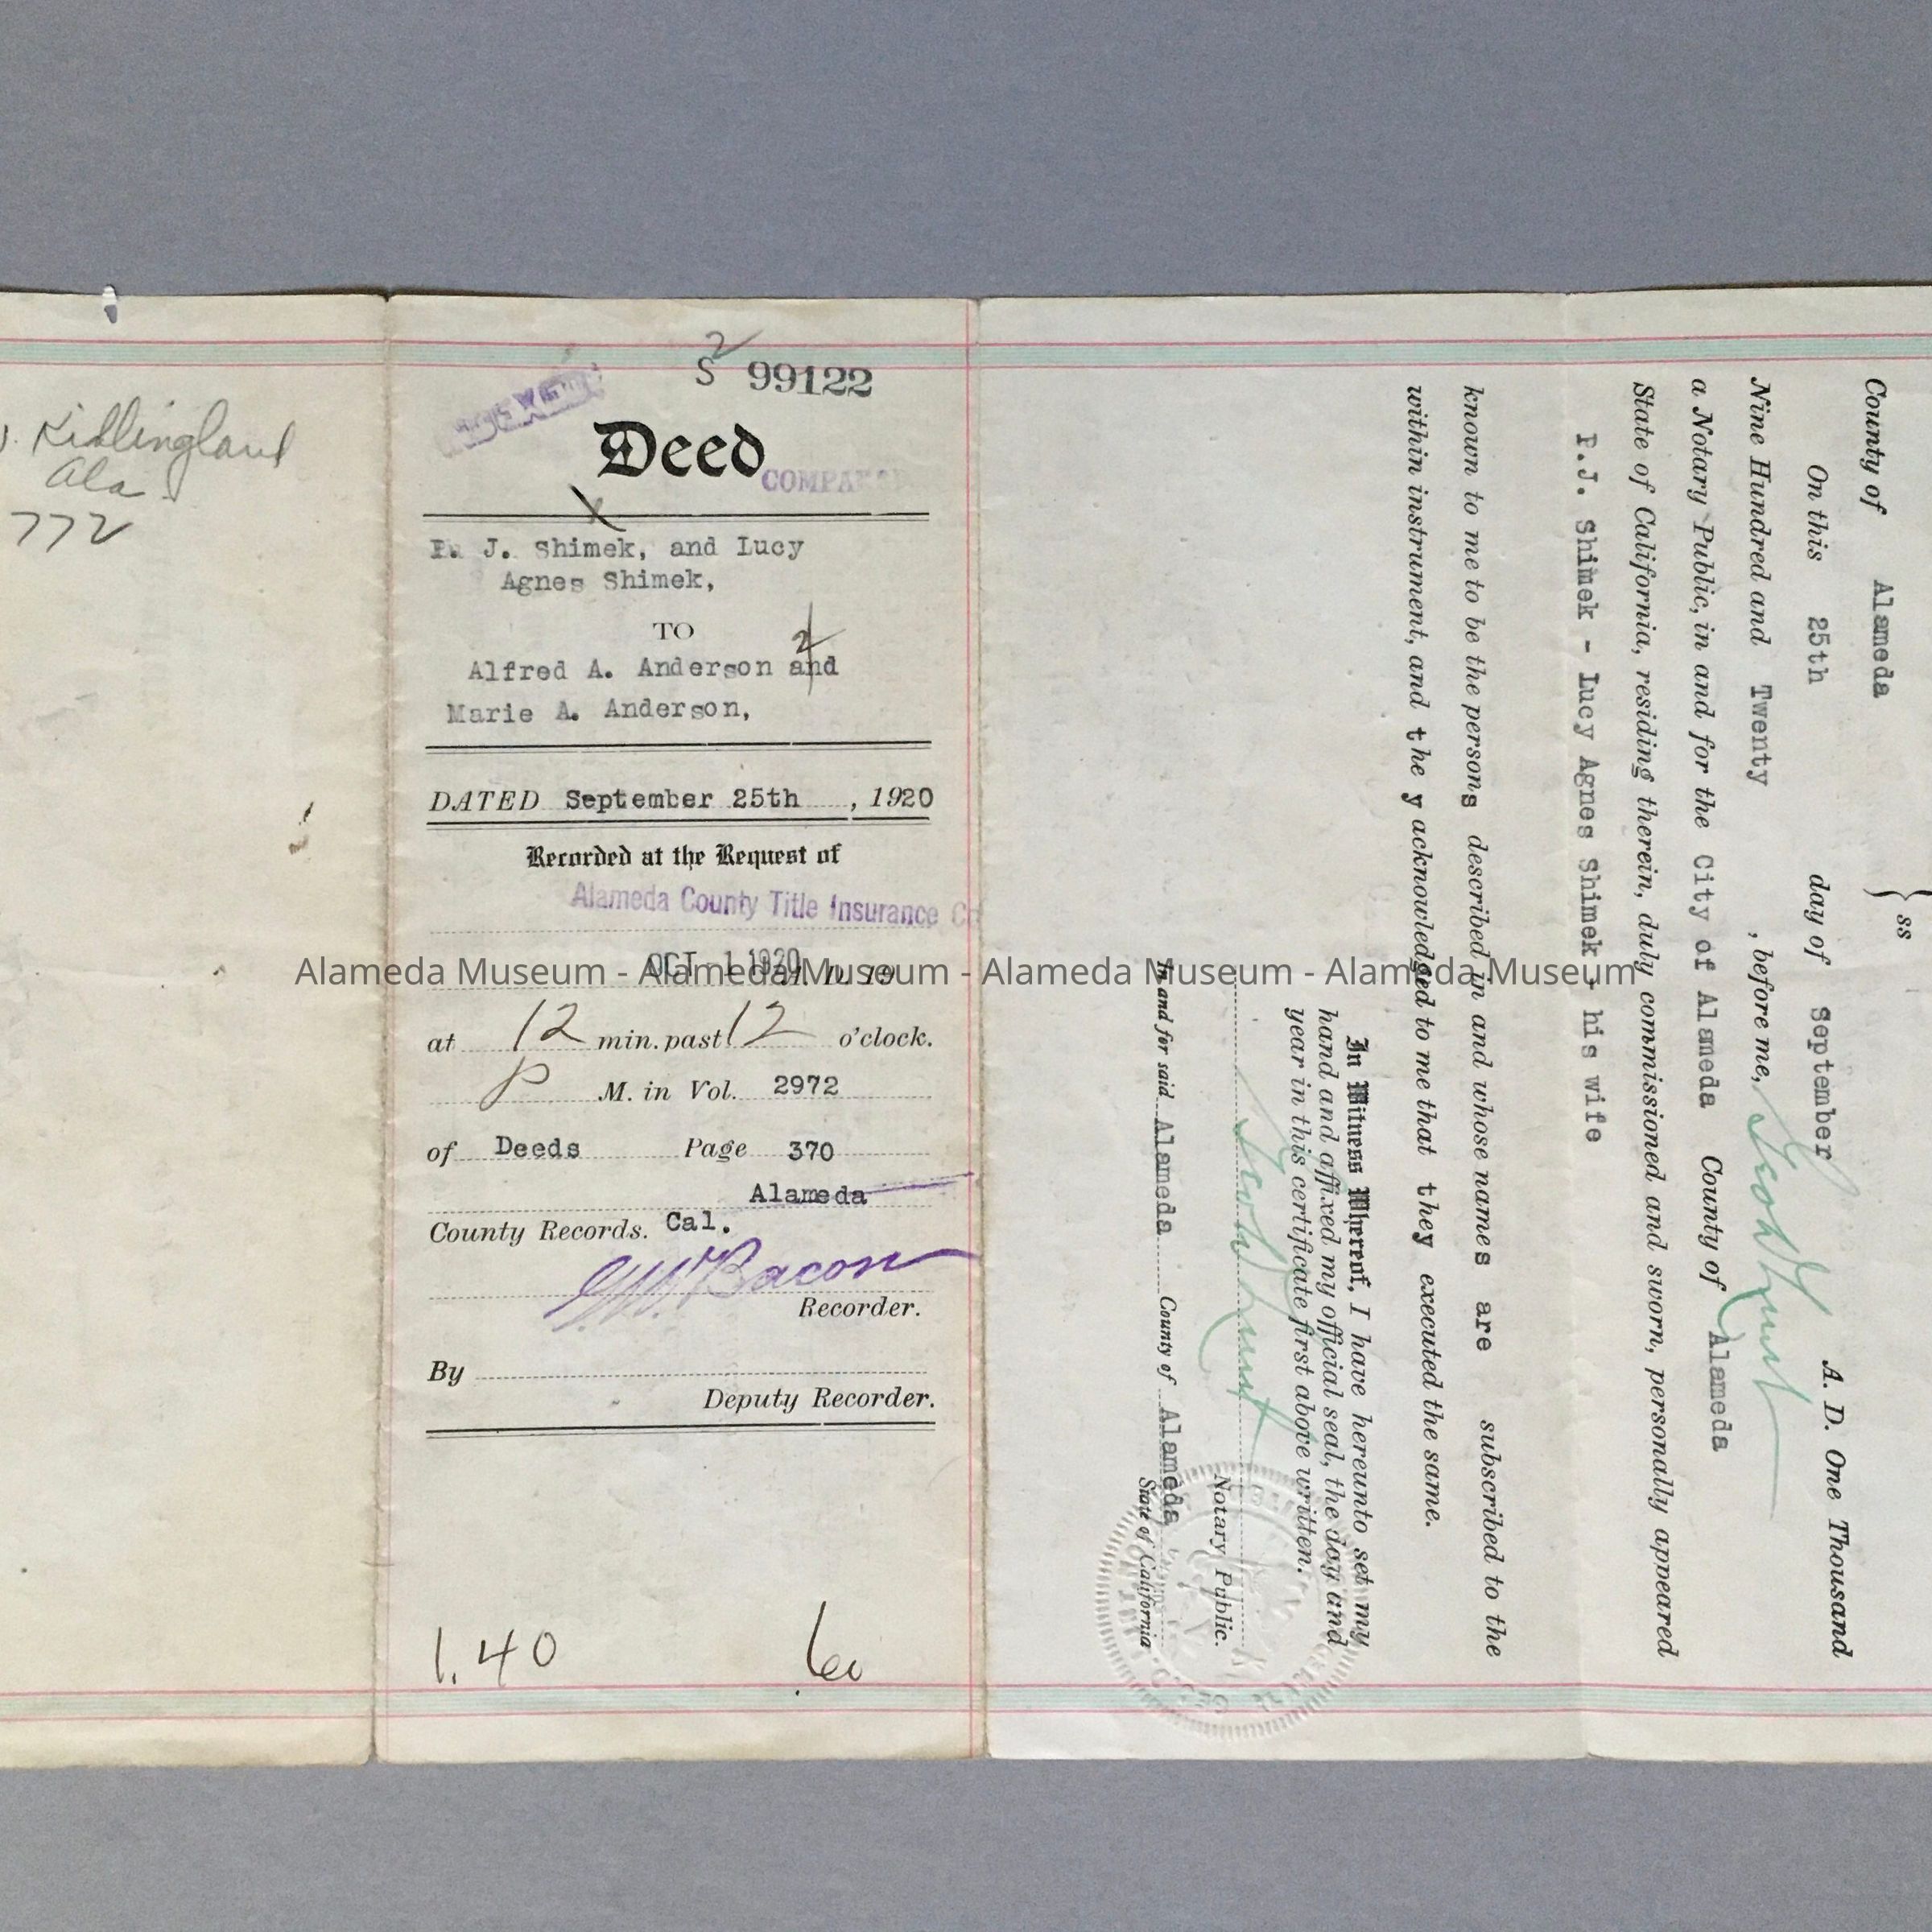 Ala
772
S 2 99122
Deed
P. J. Shimek, and Lucy
Agnes Shimek,
TO
2
Alfred A. Anderson and
Marie A. Anderson,
DATED September 25th, 1920
Recorded at the Request of
Alameda County Title Insurance Co
OCT -1 1920 A. D. 19
at 12 min. past 12 o'clock.
P M. in Vol. 2972
of Deeds Page 370
Alameda
County Records. Cal.
G. W. Bacon
Recorder.
By
Deputy Recorder.
1.40 60
County of Alameda } ss
On this 25th day of September A. D. One Thousand
Nine Hundred and Twenty, before me,
a Notary Public, in and for the City of Alameda County of Alameda
State of California, residing therein, duly commissioned and sworn, personally appeared
P.J. Shimek - Lucy Agnes Shimek - his wife
known to me to be the persons described in and whose names are subscribed to the
within instrument, and they acknowledged to me that they executed the same.
In Witness Whereof, I have hereunto set my
hand and affixed my official seal, the day and
year in this certificate first above written.
Notary Public.
In and for said Alameda County of Alameda
State of California
Alameda Museum - Alameda Museum - Alameda Museum - Alameda Museum